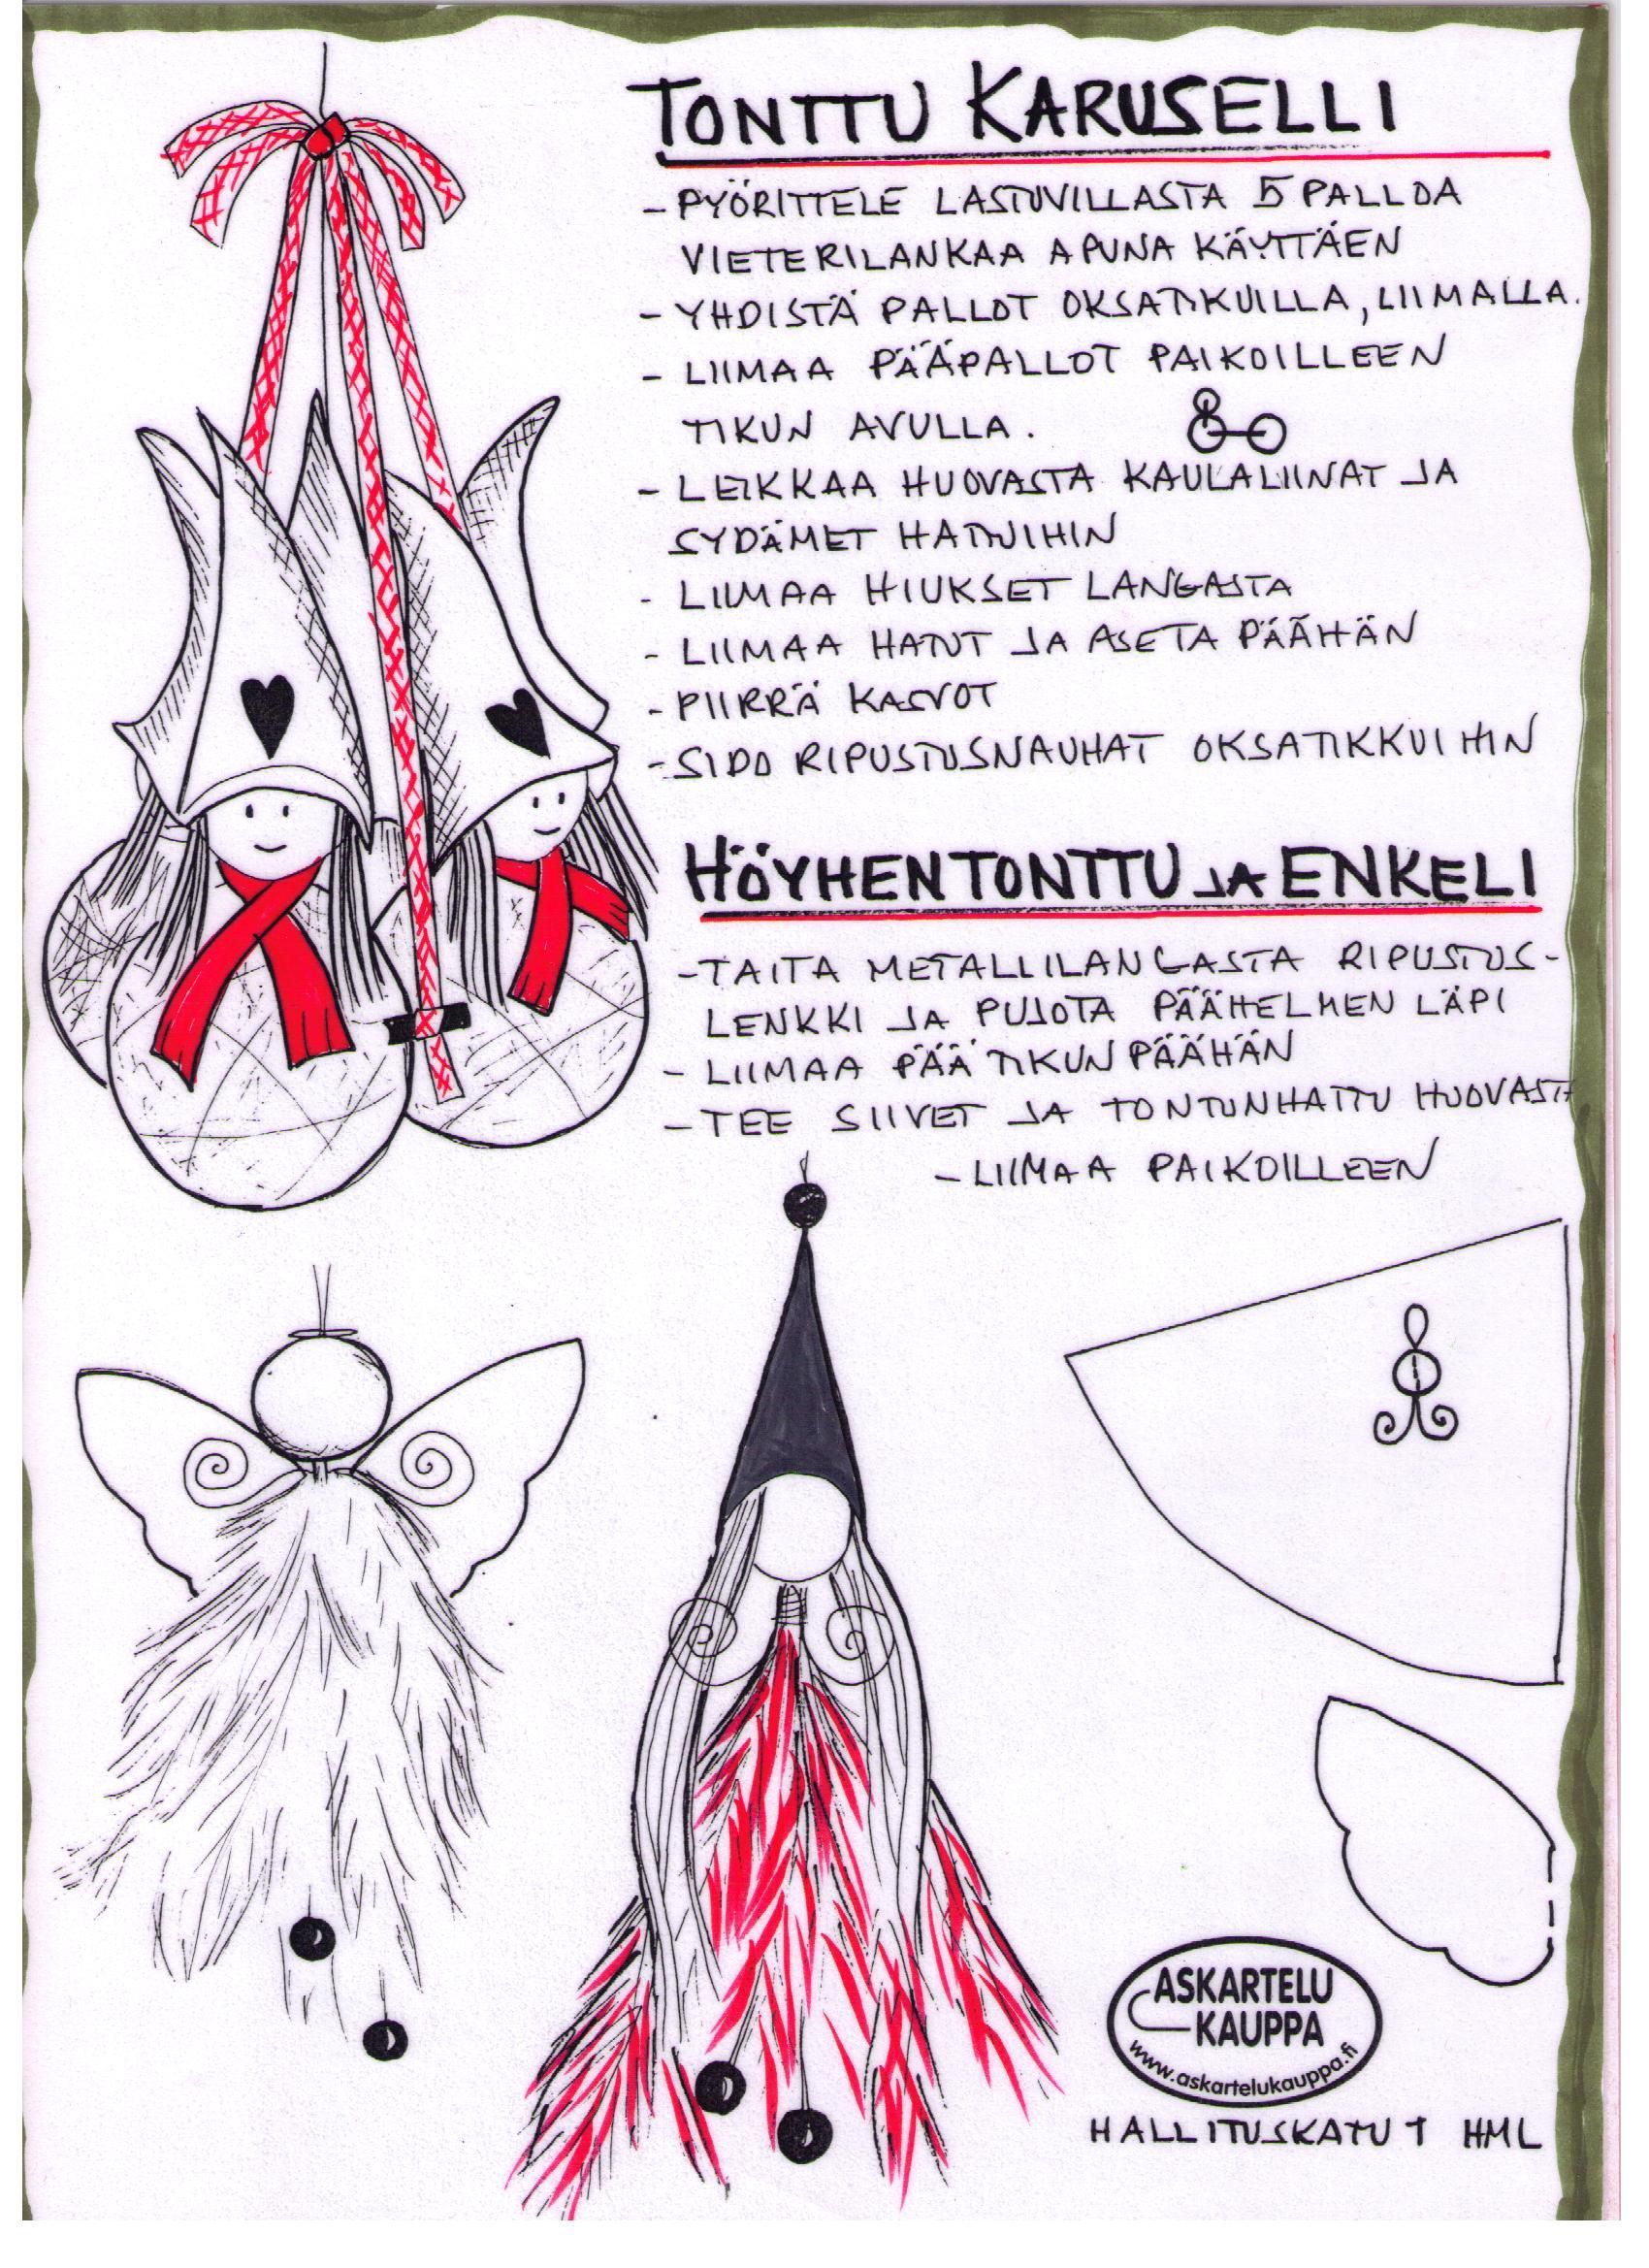 TONTTU KARUSELLI
- PYÖRITTELE LASTUVILLASTA 5 PALLOA
VIETERILANKAA APUNA KÄYTTÄEN
- YHDISTÄ PALLOT OKSATIKUILLA, LIIMALLA.
- LIIMAA PÄÄPALLOT PAIKOILLEEN
TIKUN AVULLA.
- LEIKKAA HUOVASTA KAULALIINAT JA
SYDÄMET HATTUIHIN
- LIIMAA HIUKSET LANGASTA
- LIIMAA HATUT JA ASETA PÄÄHÄN
- PIIRRÄ KASVOT
- SIDO RIPUSTUSNAUHAT OKSATIKKUIHIN
HÖYHENTONTTU JA ENKELI
- TAITA METALLILANGASTA RIPUSTUS-
LENKKI JA PUJOTA PÄÄHELMEN LÄPI
- LIIMAA PÄÄ TIKUN PÄÄHÄN
- TEE SIIVET JA TONTUNHATTU HUOVASTA
- LIIMAA PAIKOILLEEN
ASKARTELU
KAUPPA
www.askartelukauppa.fi
HALLITUSKATU 1 HML